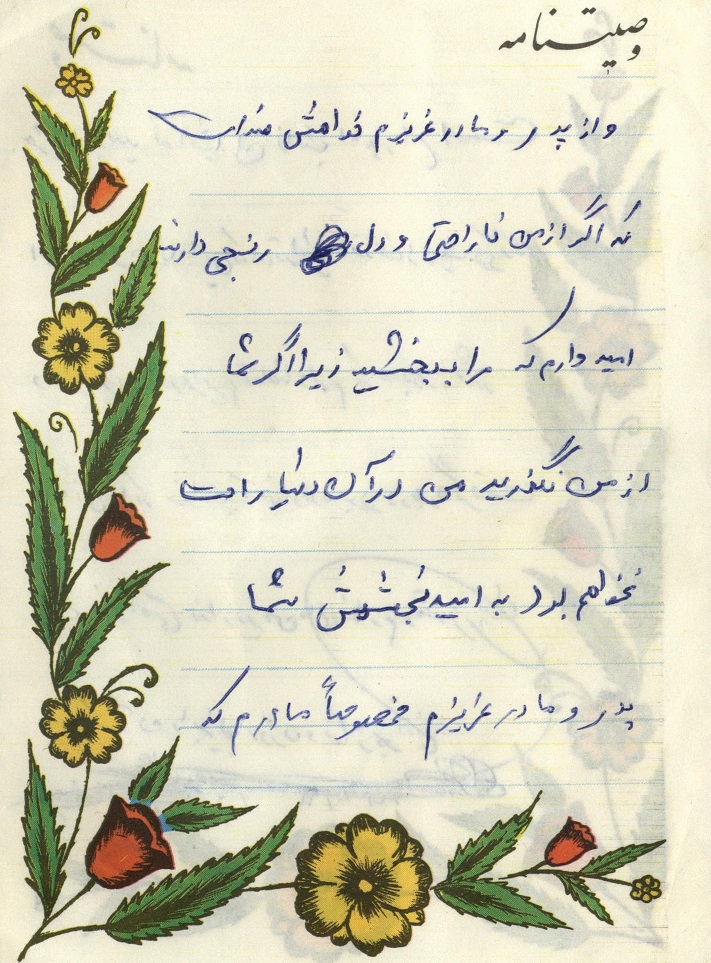 وصیتنامه
و از پدر و مادر عزیزم خواهش مندات
که اگر از من ناراحتی و دل رنجی دارند
امید دارم که مرا ببخشید زیرا اگر شما
از من نگذرید من در آن دنیا راحت
نخواهم بود به امید بخشش شما
پدر و مادر عزیزم مخصوصاً مادرم که